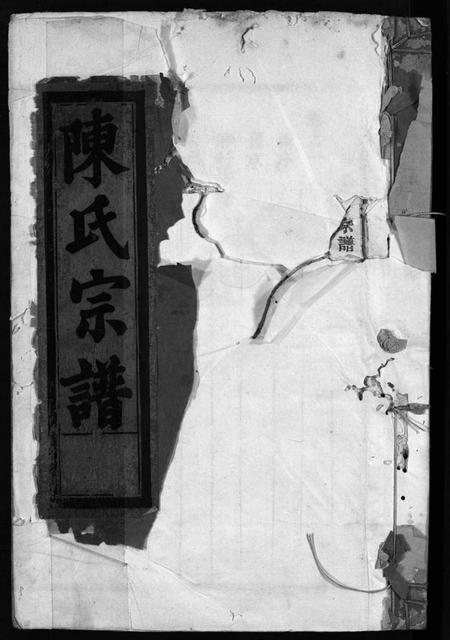 陳氏宗譜
宗譜